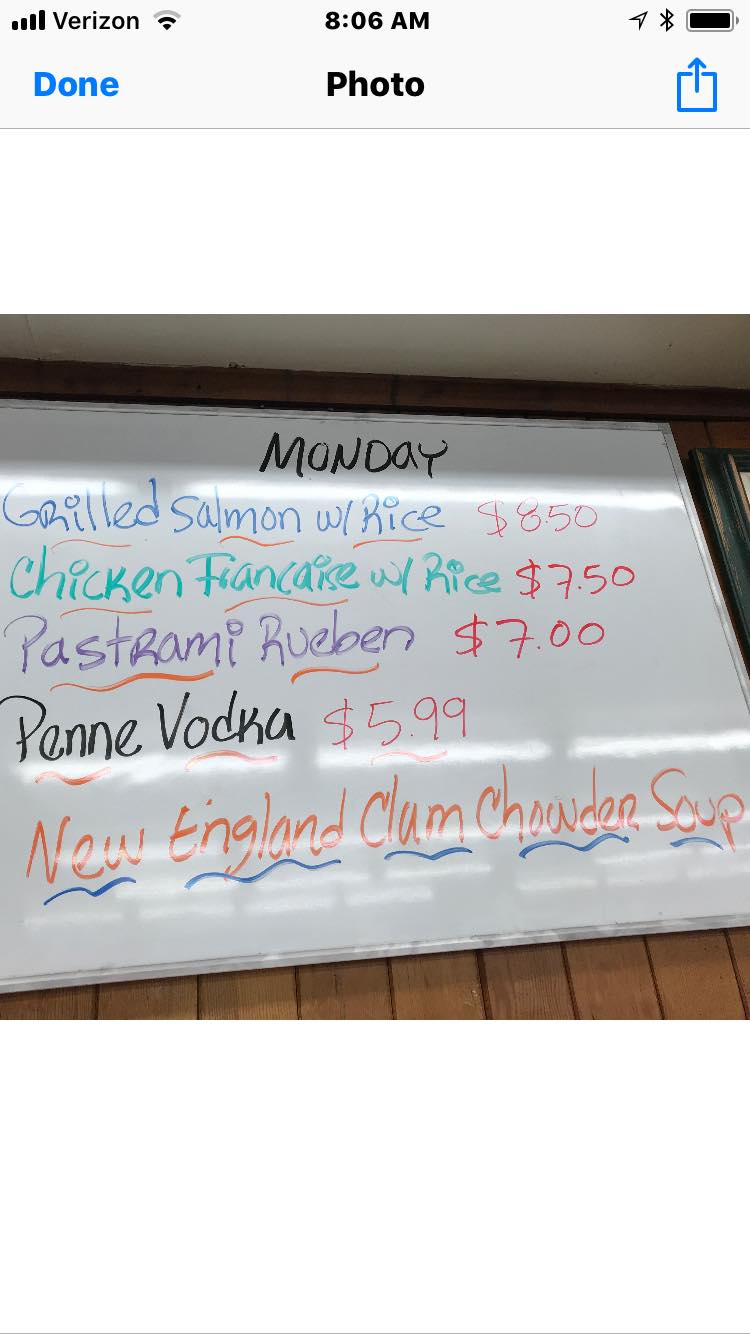 Verizon 8:06 AM
Done Photo
MONDAY
Grilled Salmon w/ Rice $8.50
Chicken Francaise w/ Rice $7.50
Pastrami Rueben $7.00
Penne Vodka $5.99
New England Clam Chowder Soup